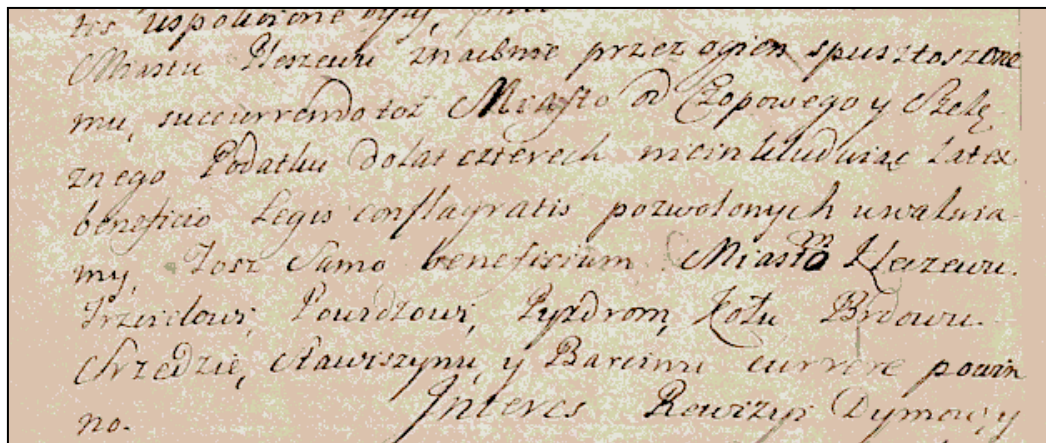 tes uspokoione były,
Miastu Pleszewu znacznie przez ogien spusztoszone
mu, succurrendo toż Miasto od Czopowego y Szelę
znego Podatku do lat czterech nieinkluduiąc Lat ex
beneficio Legis conflagratis pozwolonych uwalnia
my, Tosz Samo beneficium Miastō Kleczewu.
Powidzowi, Pyzdrom, Kołu Brdowu.
Stawiszynu, y Barcinu currere powin
no. Interes Rewizyi Dymow y